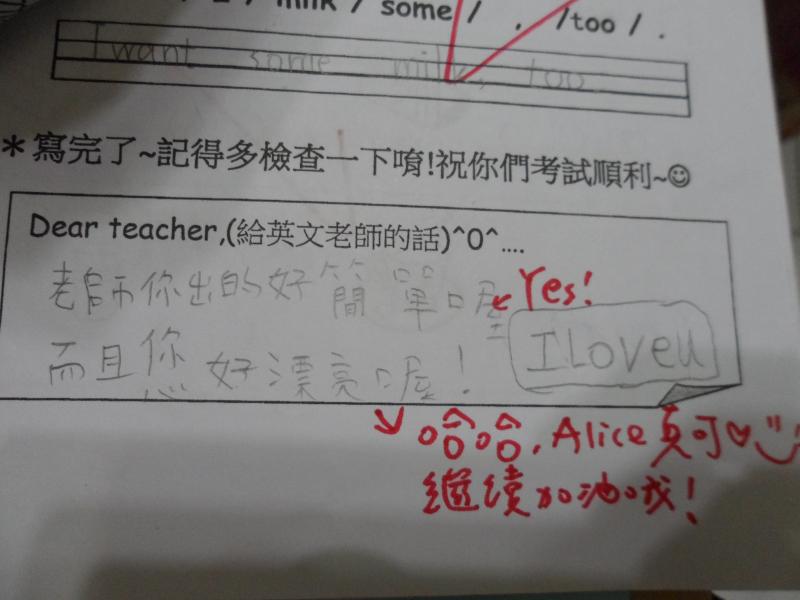 milk / some / . /too / .
I want some milk, too.
＊寫完了~記得多檢查一下唷!祝你們考試順利~☺
Dear teacher,(給英文老師的話)^0^....
老師你出的好簡單喔
Yes!
而且您好漂亮喔!
I Love u
哈哈, Alice真可♡
繼續加油哦!